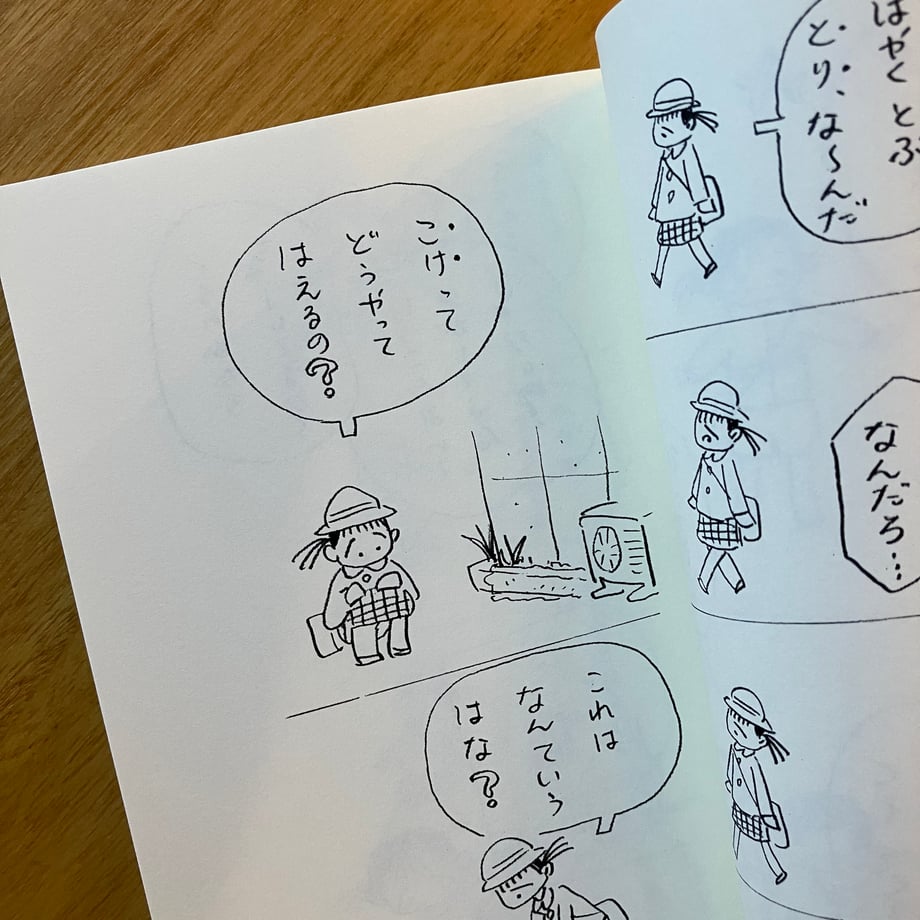 はやく とぶ
とり、な〜んだ
なんだろ…
こけって
どうやって
はえるの?
これは
なんていう
はな?